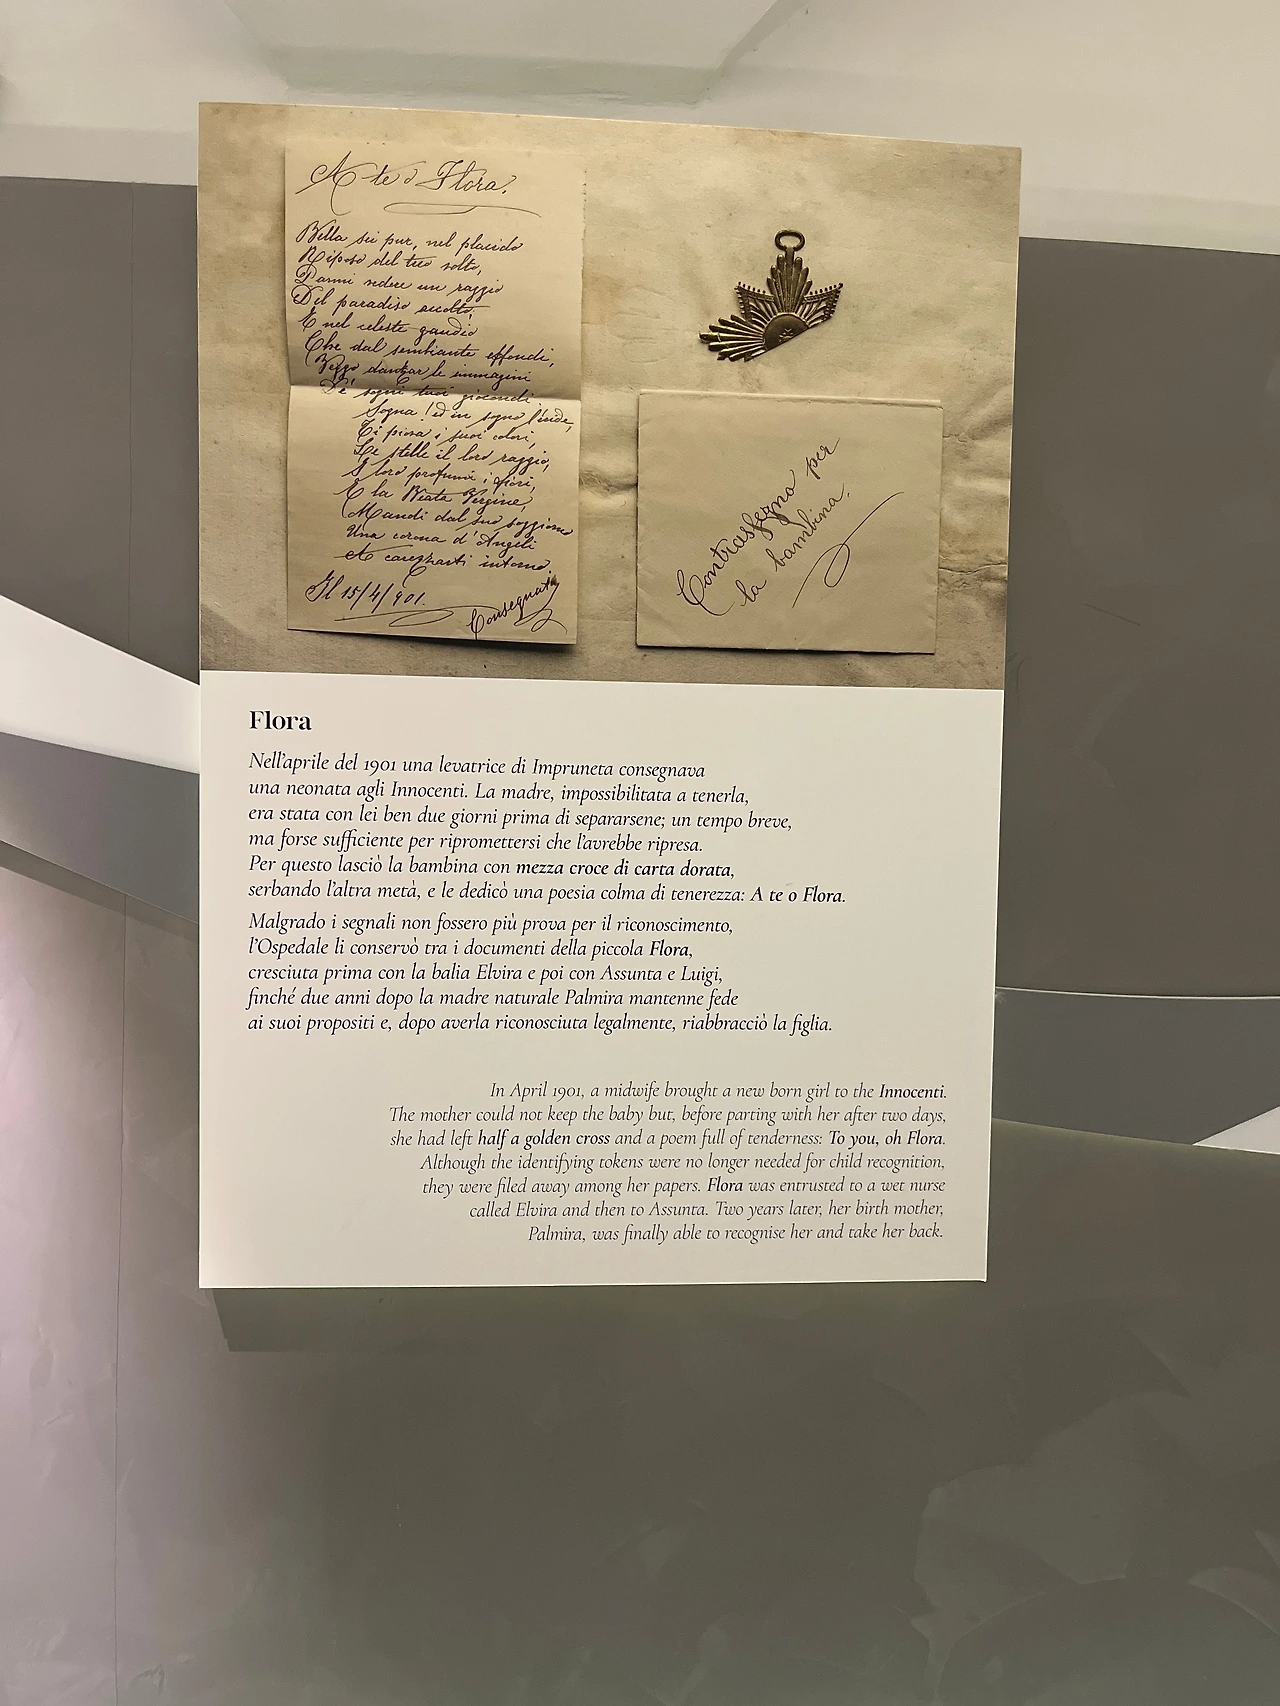 A te o Flora.
Bella sei pur, nel placido
Riposo del tuo volto,
Parmi vedere un raggio
Del paradiso accolto,
E nel celeste gaudio
Che dal sembiante effondi,
Veggo danzar le immagini
De' sogni tuoi giocondi.
Sogna! ed in sogno l'iride,
Ti piova i suoi colori,
Le stelle il loro raggio,
I loro profumi i fiori,
E la Beata Vergine,
Mandi dal suo soggiorno
Una corona d'Angeli
A carezzarti intorno.
Il 15/4/901.
Contrassegno per
la bambina.
Flora
Nell'aprile del 1901 una levatrice di Impruneta consegnava
una neonata agli Innocenti. La madre, impossibilitata a tenerla,
era stata con lei ben due giorni prima di separarsene; un tempo breve,
ma forse sufficiente per ripromettersi che l'avrebbe ripresa.
Per questo lasciò la bambina con mezza croce di carta dorata,
serbando l'altra metà, e le dedicò una poesia colma di tenerezza: A te o Flora.
Malgrado i segnali non fossero più prova per il riconoscimento,
l'Ospedale li conservò tra i documenti della piccola Flora,
cresciuta prima con la balia Elvira e poi con Assunta e Luigi,
finché due anni dopo la madre naturale Palmira mantenne fede
ai suoi propositi e, dopo averla riconosciuta legalmente, riabbracciò la figlia.
In April 1901, a midwife brought a new born girl to the Innocenti.
The mother could not keep the baby but, before parting with her after two days,
she had left half a golden cross and a poem full of tenderness: To you, oh Flora.
Although the identifying tokens were no longer needed for child recognition,
they were filed away among her papers. Flora was entrusted to a wet nurse
called Elvira and then to Assunta. Two years later, her birth mother,
Palmira, was finally able to recognise her and take her back.